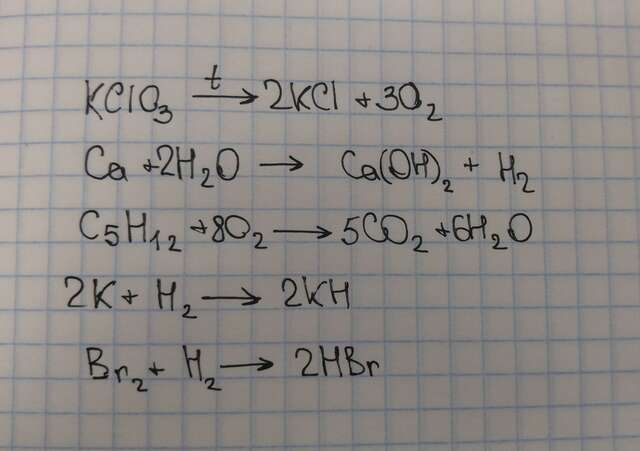 KClO₃ —t→ 2KCl + 3O₂
Ca + 2H₂O → Ca(OH)₂ + H₂
C₅H₁₂ + 8O₂ → 5CO₂ + 6H₂O
2K + H₂ → 2KH
Br₂ + H₂ → 2HBr